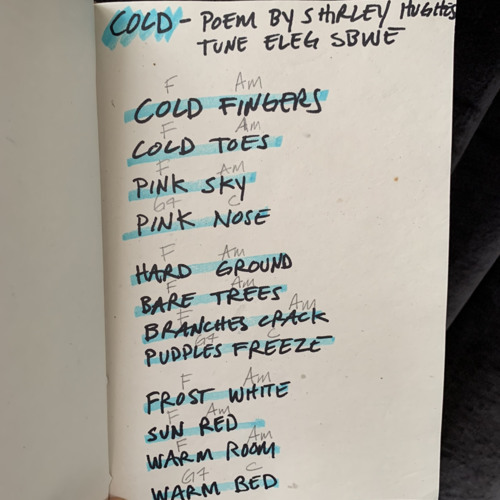 COLD - POEM BY SHIRLEY HUGHES
TUNE ELEG SBWE
F Am
COLD FINGERS
F Am
COLD TOES
F Am
PINK SKY
G7 C
PINK NOSE
F Am
HARD GROUND
F Am
BARE TREES
F Am
BRANCHES CRACK
G7 C
PUDDLES FREEZE
F Am
FROST WHITE
F Am
SUN RED
F Am
WARM ROOM
G7 C
WARM BED